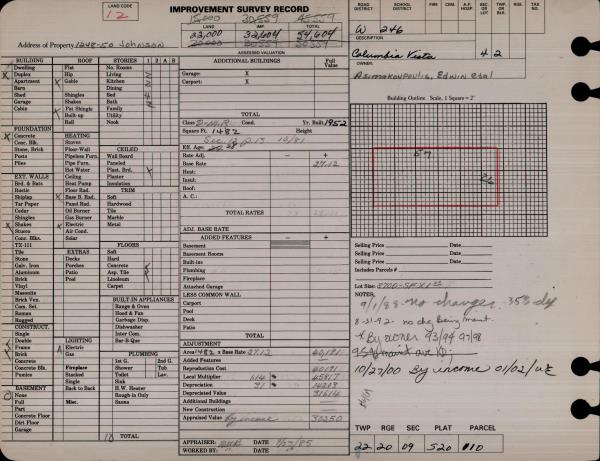 LAND CODE
12
IMPROVEMENT SURVEY RECORD
15,000 30559 45559
LAND IMP. TOTAL
22,000 32,604 54,604
Address of Property 1248-50 Johnson
ASSESSED VALUATION
ROAD DISTRICT SCHOOL DISTRICT FIRE CEM. A.P. HOSP. SEC OR LOT TWP. OR BLK. RGE. TAX NO.
W 246
DESCRIPTION
Columbia Vista 4 2
BUILT
Edwin etal
BUILDING ROOF STORIES 1 2 A B
Dwelling Flat No. Rooms
Duplex Hip Living
Apartment Gable Kitchen
Barn Dining
Shed Shingles Bed
Garage Shakes Bath
Cabin Pat Shingle Family
Built-up Utility
Roll Nook
FOUNDATION
Concrete HEATING
Conc. Blk. Stoves
Stone, Brick Floor-Wall CEILED
Posts Pipeless Furn. Wall Board
Piles Pipe Furn. Paneled
Hot Water Plast. Brd.
EXT. WALLS Ceiling Plaster
Brd. & Bats Heat Pump Insulation
Rustic Floor Rad. TRIM
Shiplap Base B. Rad. Soft
Tar Paper Panel Rad. Hardwood
Cedar Oil Burner Tile
Shingles Gas Burner Marble
Shakes Electric Metal
Stucco Solar
Conc. Blks. FLOORS
TX-111
Tile EXTRAS Soft
Stone Decks Hard
Galv. Iron Porches Concrete
Aluminum Patio Asp. Tile
Brick Pool Linoleum
Vinyl Carpet
Masonite
Brick Ven. BUILT-IN APPLIANCES
Com. Sel. Range & Oven
Roman Hood & Fan
Rugged Garbage Disp.
CONSTRUCT. Dishwasher
Single Inter Com.
Double LIGHTING Bar-B-Que
Frame Electric
Brick Gas PLUMBING
Concrete 1st G. 2nd G.
Concrete Blk. Fireplace Shower Tub
Pumice Stacked Toilet Lav.
Single Sink
BASEMENT Back to Back H.W. Heater
None Rough-in Only
Full Misc. Sauna
Part
Concrete Floor
Dirt Floor
Garage
TOTAL
ADDITIONAL BUILDINGS Full Value
Garage: X
Carport: X
TOTAL
Cond. Yr. Built 1952
Square Ft. 1482 Height
Eff. Age:
Rate Adj. - +
Base Rate 27.12
Heat:
Insul:
Roof:
A. C.:
TOTAL RATES
ADJ. BASE RATE
ADDED FEATURES - +
Basement
Basement Rooms
Built-ins
Plumbing
Fireplace
Attached Garage
LESS COMMON WALL
Carport
Pool
Deck
Patio
TOTAL
ADJUSTMENT
Area 1482 x Base Rate 27.12 40,191
Added Features
Reproduction Cost 40191
Local Multiplier
Depreciation 31
Depreciated Value 31614
Additional Buildings
New Construction
Appraised Value By income 30250
APPRAISER: DATE 7/23/85
WORKED BY: DATE
Building Outline Scale, 1 Square = 2'
57
26
Selling Price Date
Selling Price Date
Selling Price Date
Includes Parcels #
Lot Size:
NOTES:
9/1/88 - no changes. 35%
8-31-92 - no chg being maint
By owner 93/94 97/98
10/27/00 By income 01/02/
TWP RGE SEC PLAT PARCEL
22 20 09 520 110